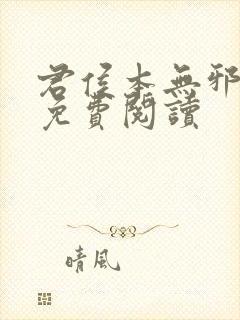 君侯本無邪
免費閱讀
晴風